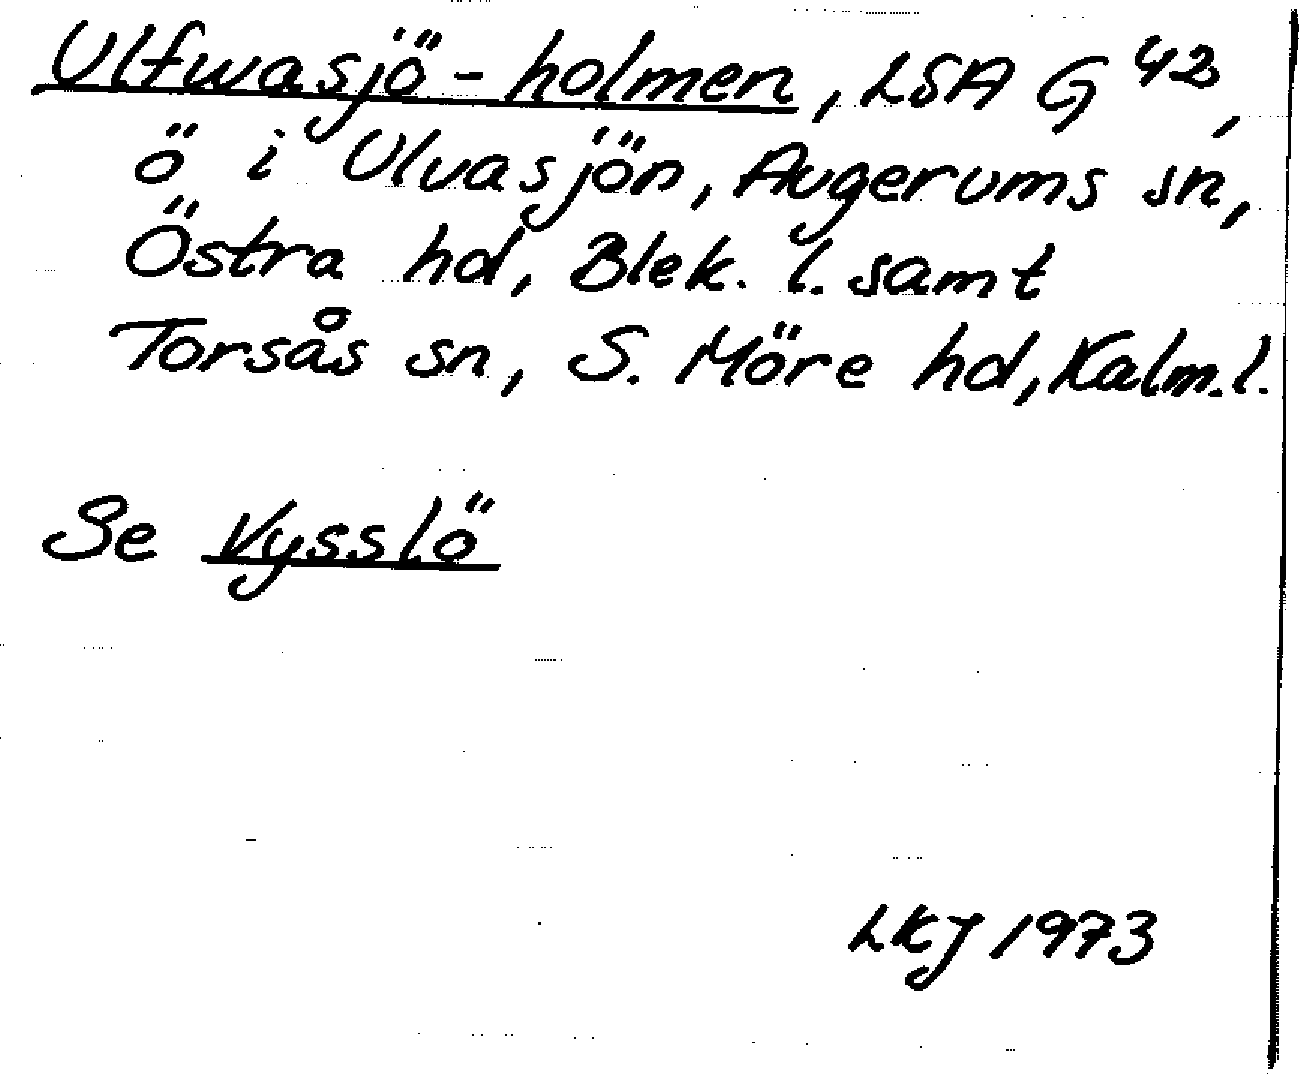 Ulfwasjö-holmen, LSA G 42,
ö i Ulvasjön, Augerums sn,
Östra hd, Blek. l. samt
Torsås sn, S. Möre hd, Kalm. l.
Se Vysslö
LKJ 1973